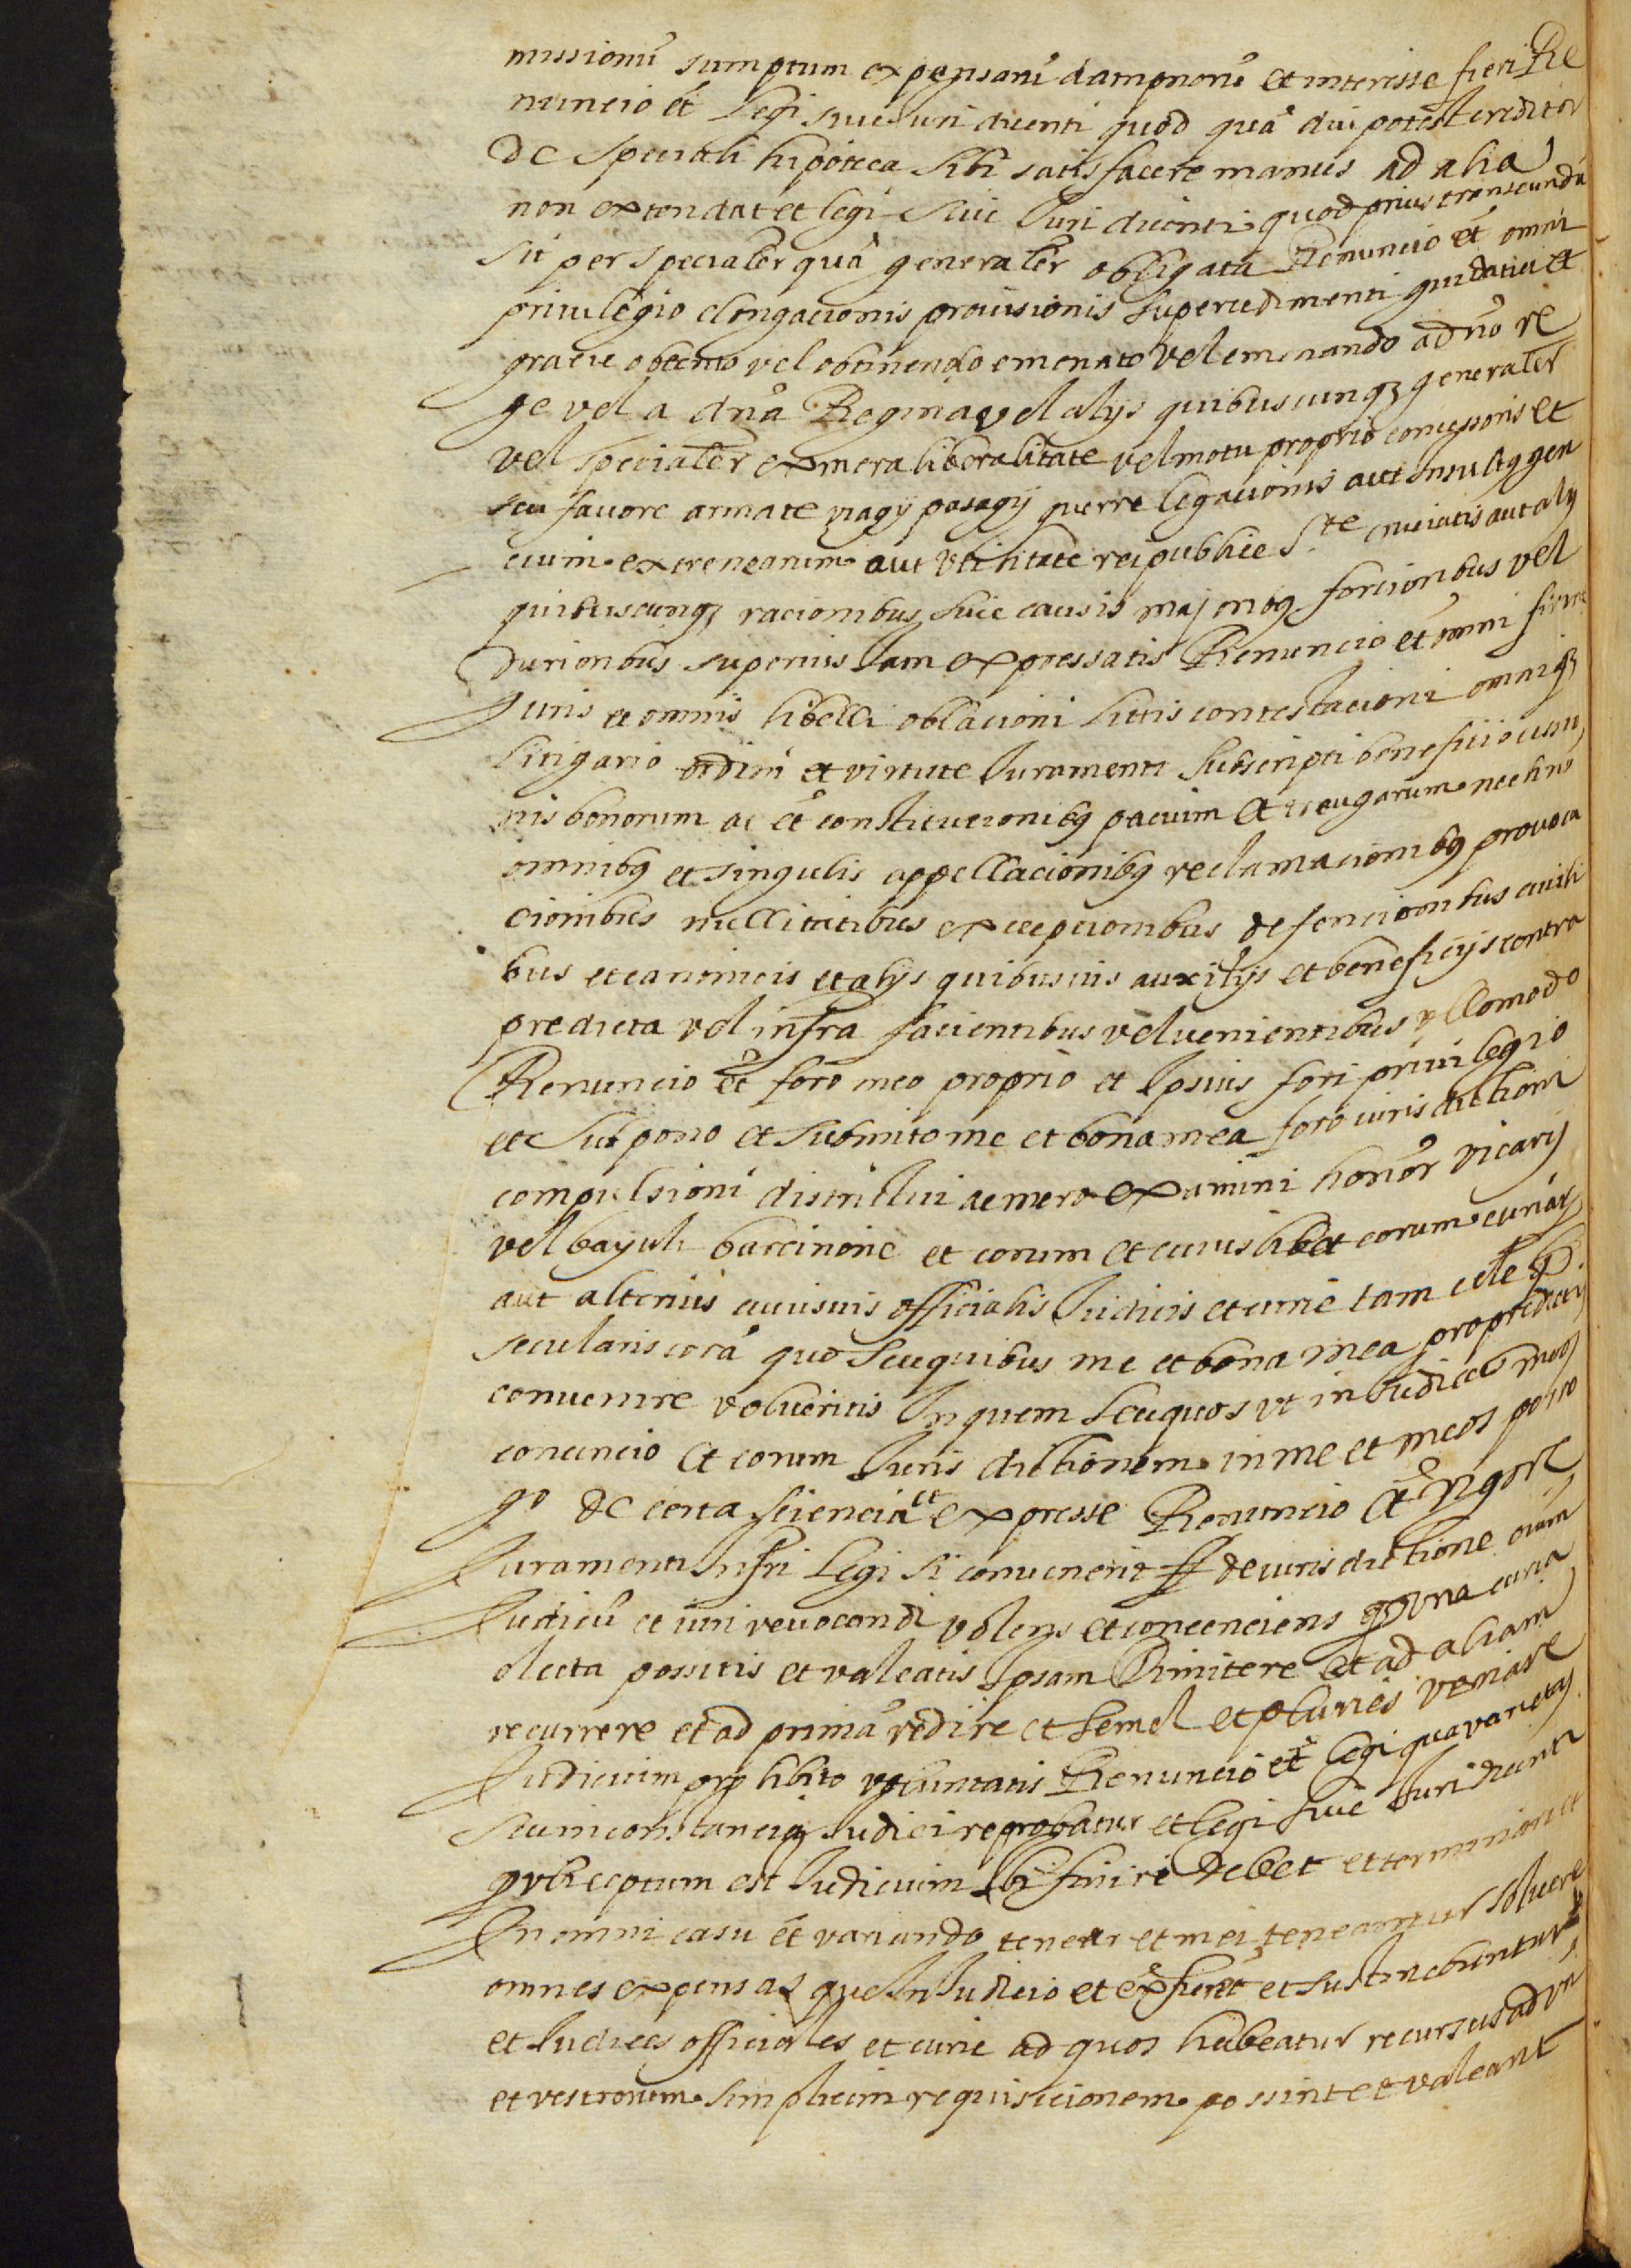 missionũ sumptum expensarũ dampnorũ et interesse fieri Re
nuncio ẽt legi siue iuri dicenti quod quã diu potest creditor
de speciali hipoteca sibi satisfacere manus ad alia
non extendat et legi siue Iuri dicenti quod prius transeundũ
sit per specialẽr quã generalẽr obligata Renuncio ẽt omni
priuilegio elongacionis prouisionis supercedimenti guidatici et
gracie obtento vel obtinendo emenato vel emenando a dño re
ge vel a dña Regina vel alijs quibuscunqȝ generalẽr
vel specialẽr ex mera liberalitate vel motu proprio concessoris et
seu fauore armate viagij pasagij guerre legacionis aut insultq gen
cium extrenearum aut vtilitate reipublice Ste cruciatis aut alijs
quibuscunqȝ racionibus siue causis majoribq forcioribus vel
durioribus superius Iam expressatis Renuncio ẽt omni firme
Iuris et omnis libelli oblacioni littis contestacioni omniqȝ
litigario ordini et virtute Iuramenti subscripti beneficio cessio
nis bonorum ac ẽt constitucionibq pacium et treugarum nec hiis
omnibq et singulis appellacionibq reclamacionibq prouoca
cionibus nullitatibus excepcionibus defencionibus ciuili
bus et canonicis et alijs quibusuis auxilijs et beneficijs contra
predicta vel infra facientibus vel venientibus vllomodo
Renuncio ẽt foro meo proprio et Ipsius fori priuilegio
etc Subpono et submito me et bona mea foro iurisdictioni
compulsioni districtui ac mero examini honor vicarij
vel bajuli barcinone et eorum et cuiuslibet eorum curiar
aut alterius cuiusuis officialis Iudicis et curie tam eccle qᵽ
secularis corã quo seu quibus me et bona mea pro predictis
conuenire volueritis In quem seu quos vt in Iudices meos
concencio et eorum Iuris dictionem in me et meos poro
go de certa sciencia et expresse Renuncio ẽt vigore
Iuramenti Infri legi si conuenerit ff de iurisdictione oium
Iudicũ et iuri reuocandi volens et concenciens q vna curia
electa possitis et valeatis Ipsam Dimitere et ad aliam
recurrere et ad primã redire et semel et pluries variare
Iudicium pro libito voluntatis Renuncio ẽt legi qua varietas
seu inconstancia Iudici reprobatur et legi siue Iuri dicenti
q vbi ceptum est Iudicium Ibi finiri debet et terminari et
In omni casu ẽt variando tenear et mei teneantur soluere
omnes expensas que In Iudicio et ex̃ fient et sustinebuntur
et Iudices officiales et curie ad quos habeatur recursus ad vr̃
et vestrorum simplicem requisicionem possint et valeant